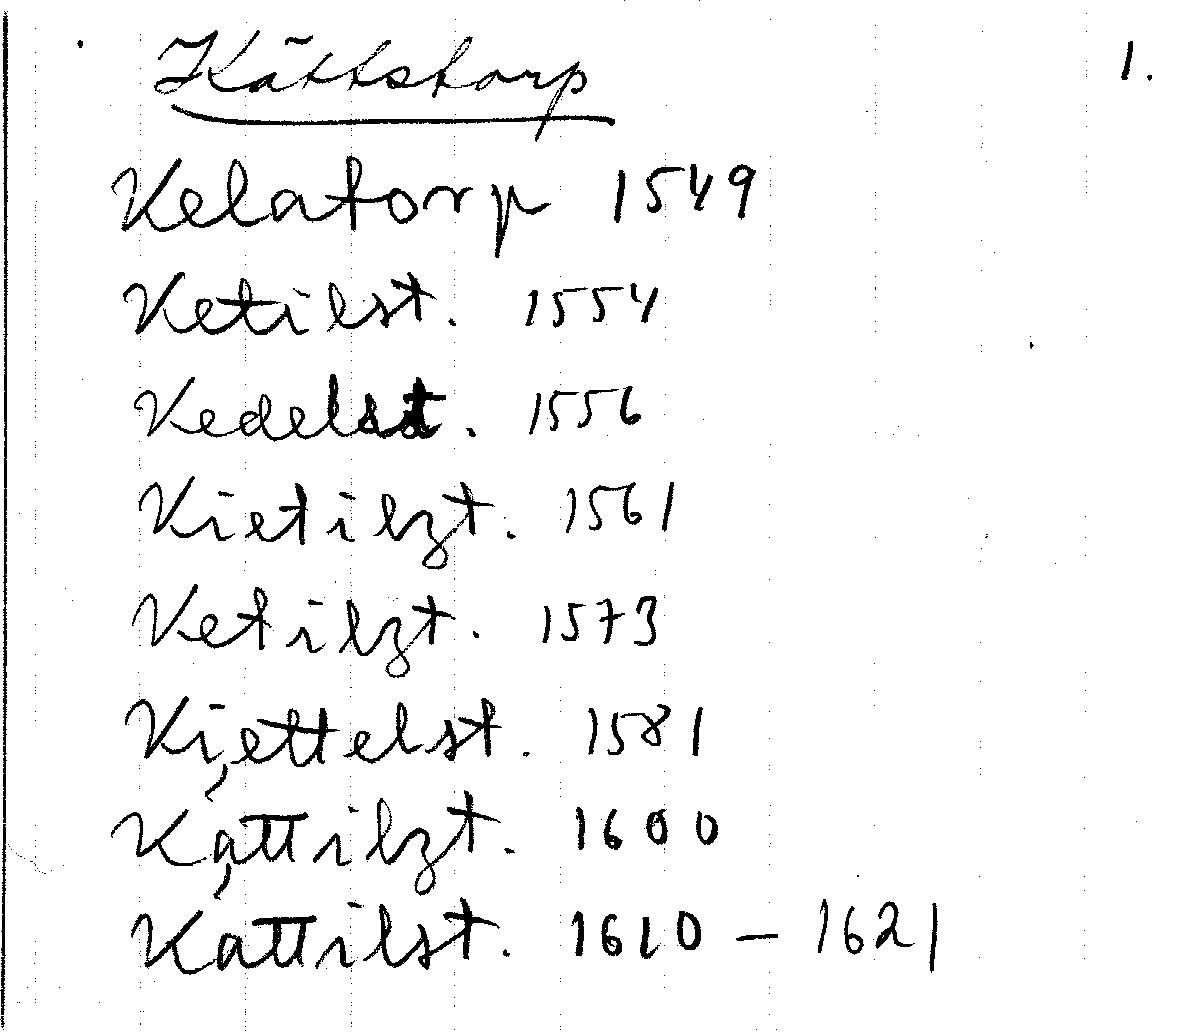 Kättstorp 1.
Kelatorp 1549
Ketilst. 1554
Kedelst. 1556
Kietilzt. 1561
Ketilzt. 1573
Kiettelst. 1581
Kąttilzt. 1600
Kąttilst. 1610 – 1621